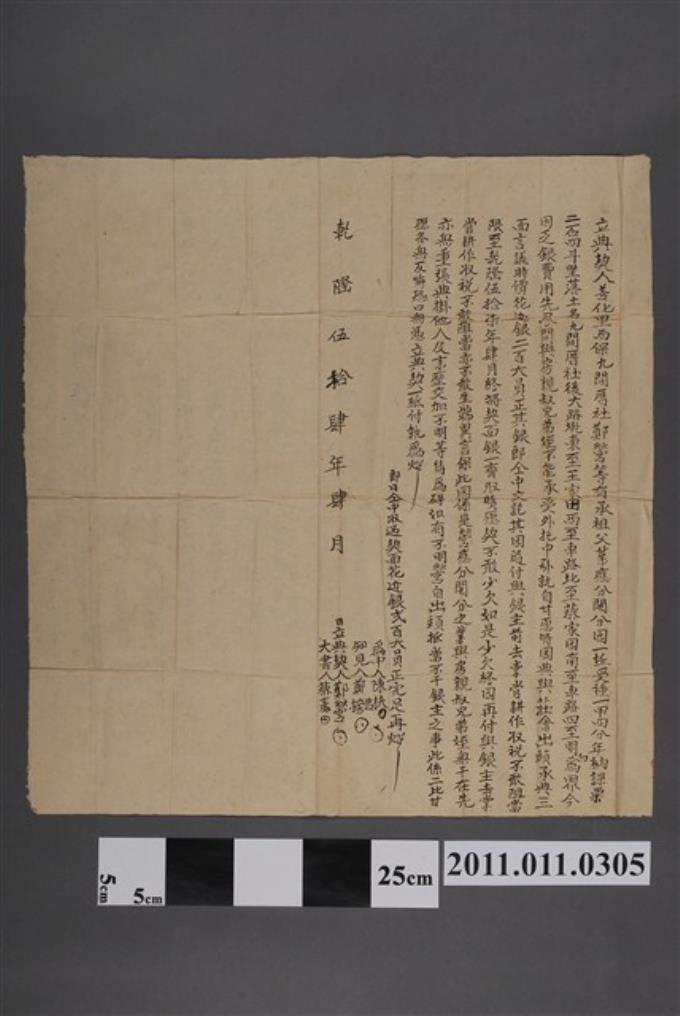 立典契人善化里西保九間厝社鄭鶯等有承祖父業應分鬮分園一坵受種一甲四分年納課粟
二石四斗坐落土名九間厝社後大路墘東至王家田西至車路北至蔡家園南至車路四至明為界今
因乏銀費用先尽問與房親叔兄弟姪不能承受外托中引就自甘愿將園典與莊會出頭承典三
面言議時價花边銀二百大員正其銀即仝中交訖其園隨付與銀主前去掌管耕作取税不敢阻當
限至乾隆伍拾柒年肆月終將契面銀一齊取贖原契不敢少欠如是少欠終園再付與銀主去掌
管耕作取税不敢阻當亦不敢生端異言保此園係是鶯應分鬮分之業與房親叔兄弟姪無干在先
亦無重張典掛他人及來歷交加不明等情為碍如有不明鶯自出頭抵當不干銀主之事此係二比甘
愿各無反悔恐口無憑立典契一紙付執為炤
即日仝中收過契面花边銀弍百大員正完足再炤
為中人陳扶
知見人鄭
乾隆伍拾肆年肆月 日立典契人鄭鶯
代書人蔡
5cm 5cm 25cm
2011.011.0305